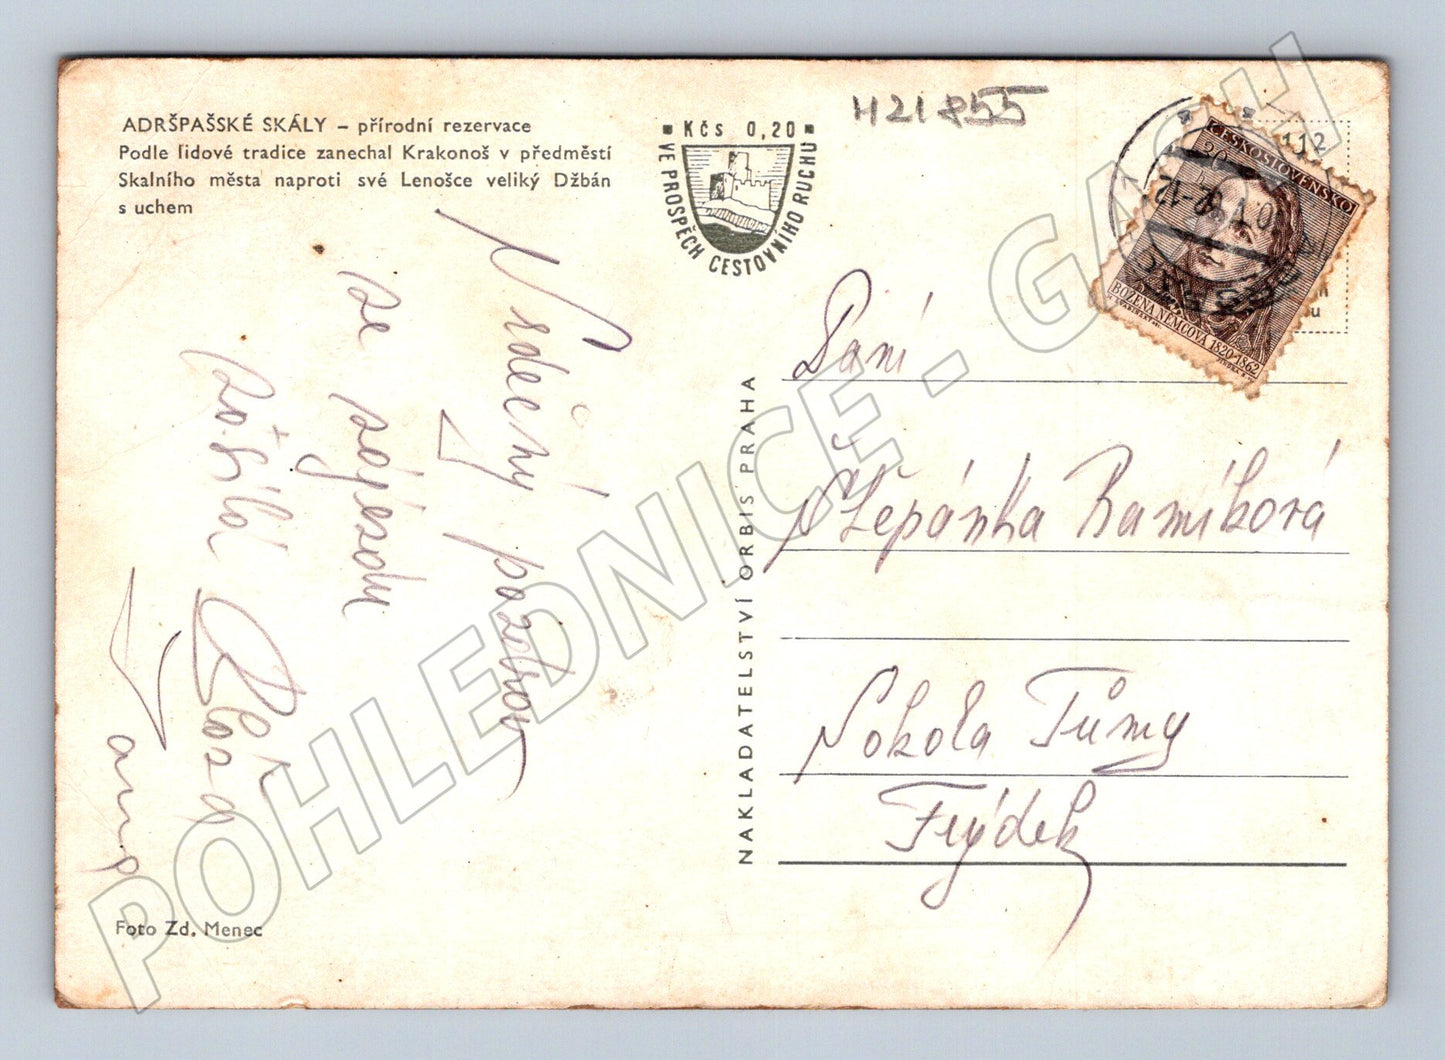 ADRŠPAŠSKÉ SKÁLY – přírodní rezervace
Podle lidové tradice zanechal Krakonoš v předměstí
Skalního města naproti své Lenošce veliký Džbán
s uchem
Kčs 0,20
VE PROSPĚCH CESTOVNÍHO RUCHU
H21855
ČESKOSLOVENSKO
30
BOŽENA NĚMCOVÁ 1820-1862
112
Srdečný pozdrav
ze zájezdu
Foto Zd. Menec
NAKLADATELSTVÍ ORBIS PRAHA
Paní
Štěpánka Ramíková
Sokola Tůmy
Frýdek
POHLEDNICE - GACH